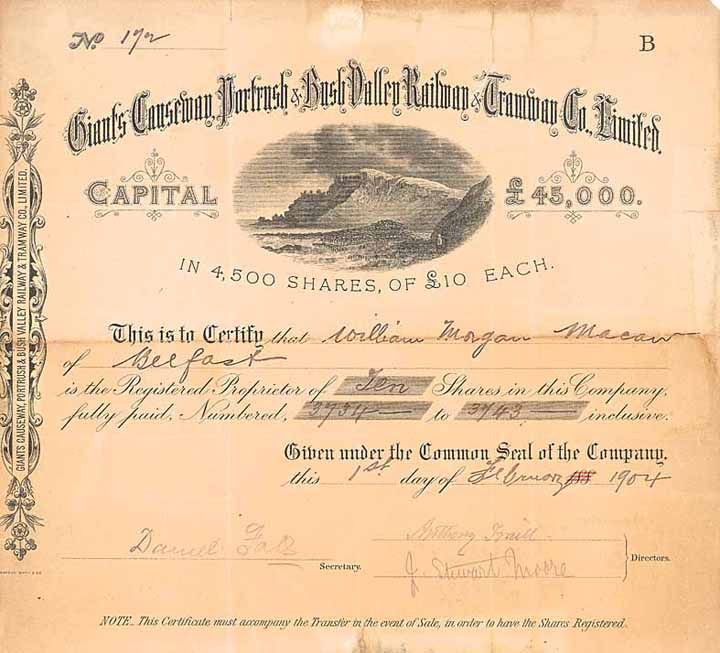 No 172
B
Giant's Causeway, Portrush & Bush Valley Railway & Tramway Co., Limited.
CAPITAL £45,000.
IN 4,500 SHARES, OF £10 EACH.
This is to Certify that William Morgan Macaw
of Belfast
is the Registered Proprietor of Ten Shares in this Company,
fully paid, Numbered, 3734 to 3743 inclusive.
Given under the Common Seal of the Company,
this 1st day of February 1904
Daniel
Secretary.
Anthony Traill
J. Stewart Moore
Directors.
NOTE. This Certificate must accompany the Transfer in the event of Sale, in order to have the Shares Registered.
GIANTS CAUSEWAY, PORTRUSH & BUSH VALLEY RAILWAY & TRAMWAY CO. LIMITED.